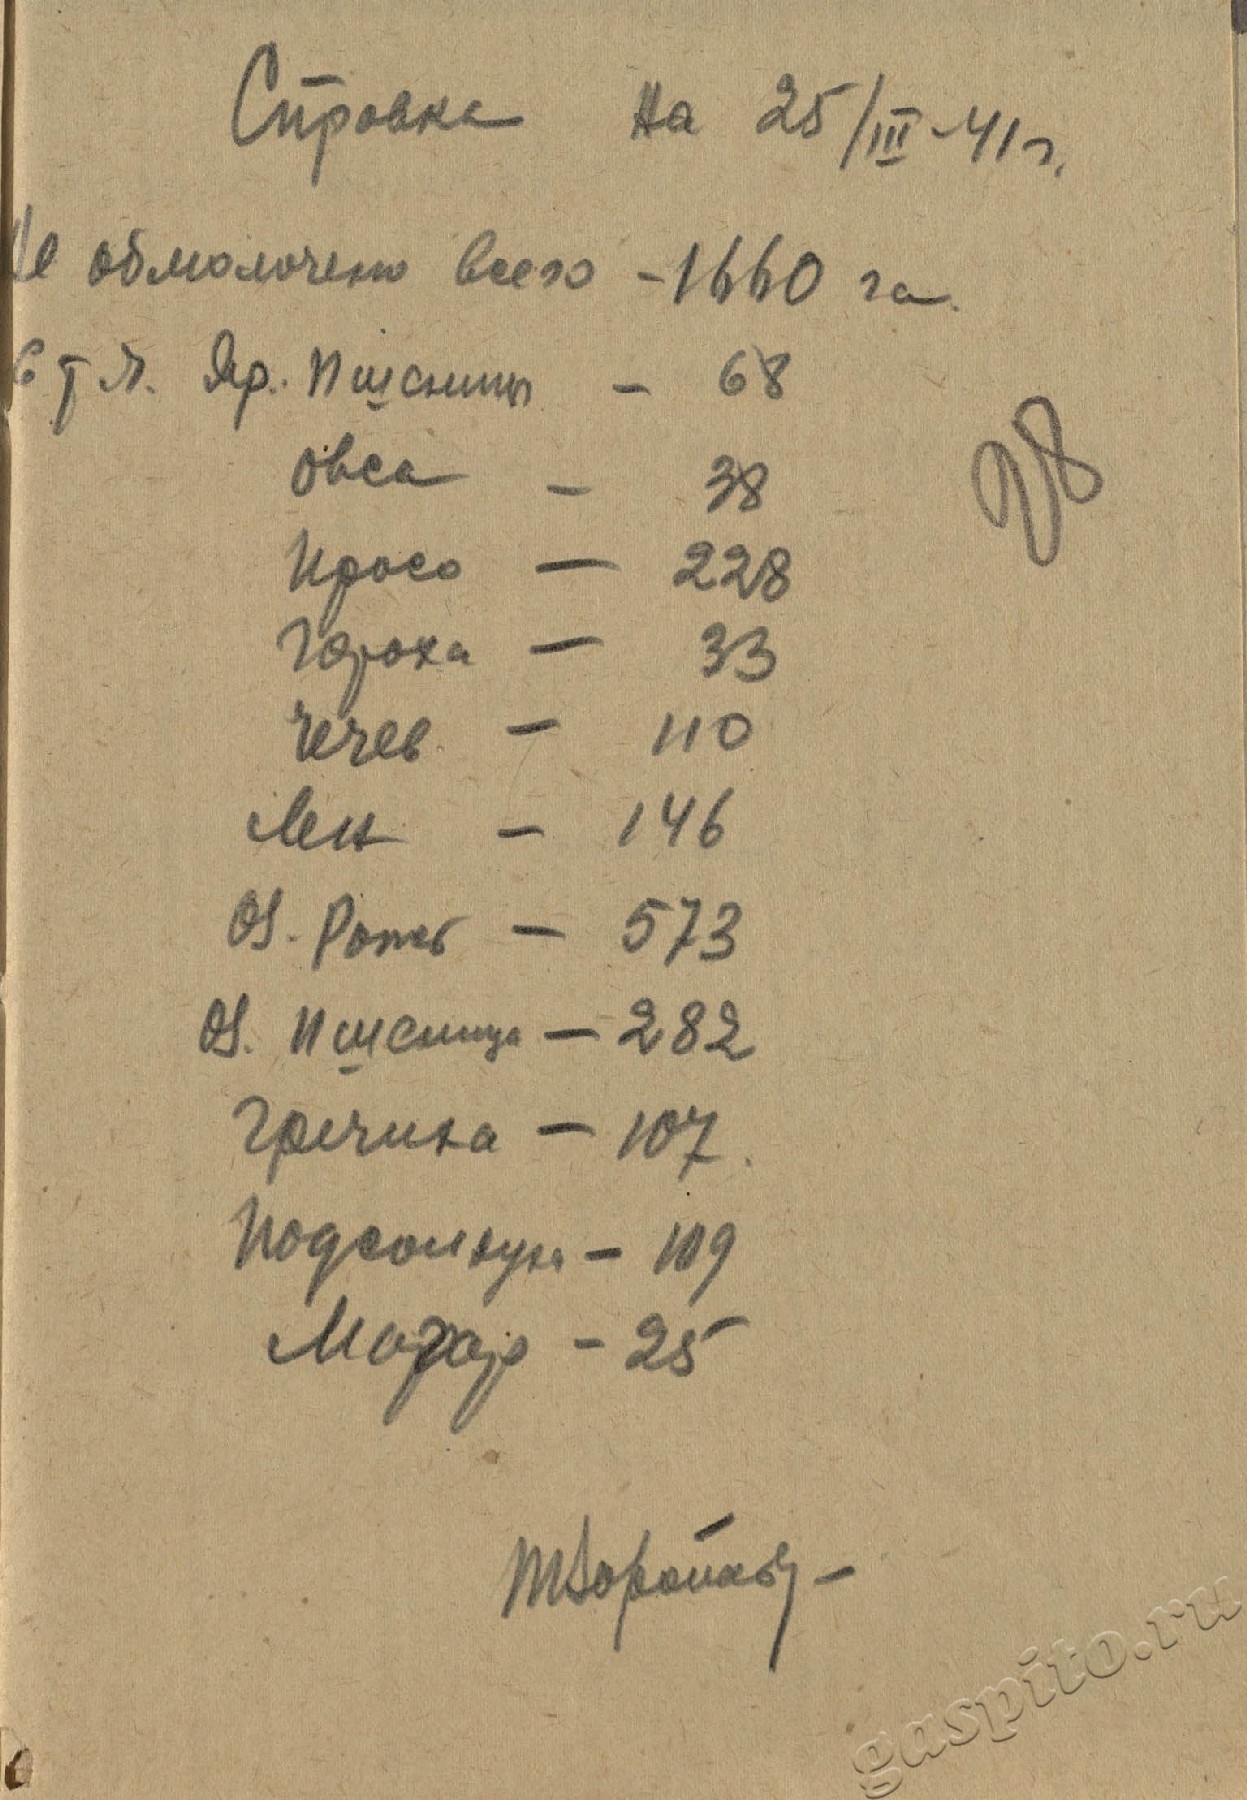 Справка на 25/III-41г.
Не обмолочено всего - 1660 га.
в т.ч. Яр. Пшеницы - 68
28
овса - 38
Просо - 228
Гороха - 33
Чечев. - 110
Лен - 146
Оз. Рожь - 573
Оз. Пшеница - 282
Гречиха - 107.
Подсолнух - 109
Могар - 25
gaspito.ru